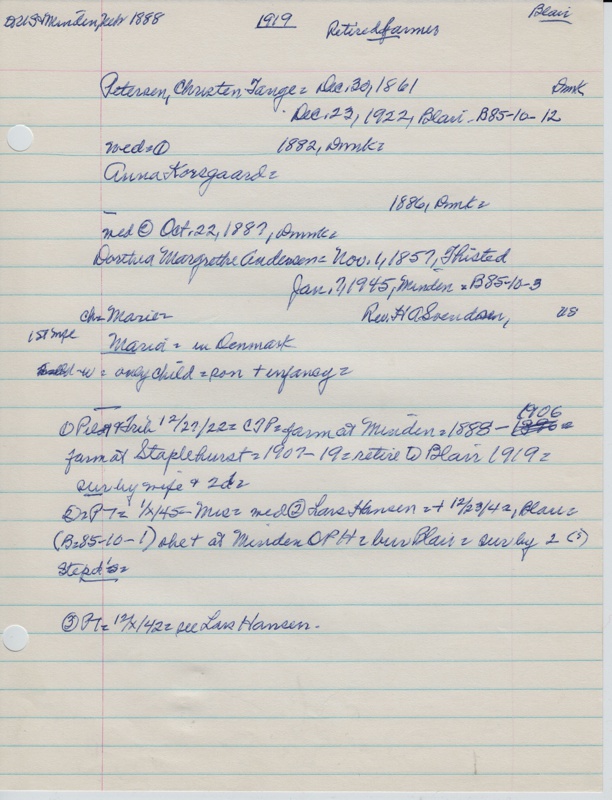 US = Minden, Nebr 1888 1919 Retired farmer Blair
Petersen, Christen Tange = Dec. 30, 1861 Dmk
Dec. 23, 1922, Blair. B85-10-12
med = ① 1882, Dmk =
Anna Korsgaard =
1886, Dmk =
med ② Oct. 22, 1887, Dmk =
Dorthea Margrethe Andersen = Nov. 1, 1857, Thisted
Jan. 7, 1945, Minden = B85-10-3
ch = Marie = Rev. H A Svendsen, US
1st wife Maria = in Denmark
w = only child = son + infancy =
① & Trib 12/27/22 = CTP = farm at Minden = 1888 - 1906
farm at Staplehurst = 1907-19 = retire to Blair 1919 =
sur by wife & 2d =
② = PT = 1/X/45 - Mrs = med ② Lars Hansen = + 12/23/42, Blair =
(B = 85-10-1) she + at Minden OPH = bur Blair = sur by 2 (s)
Stepd's =
③ PT = 12/X/42 = see Lars Hansen.